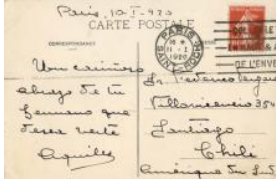 Paris, 10-I-920
CARTE POSTALE
CORRESPONDANCE
Un cariñoso
abrazo de tu
hermano que
desea verte
Aquiles
PARIS
11-1
1920
ST ROCH
DE L'ENVE
Villavicencio 354
Santiago
Chili
Amérique du Sud